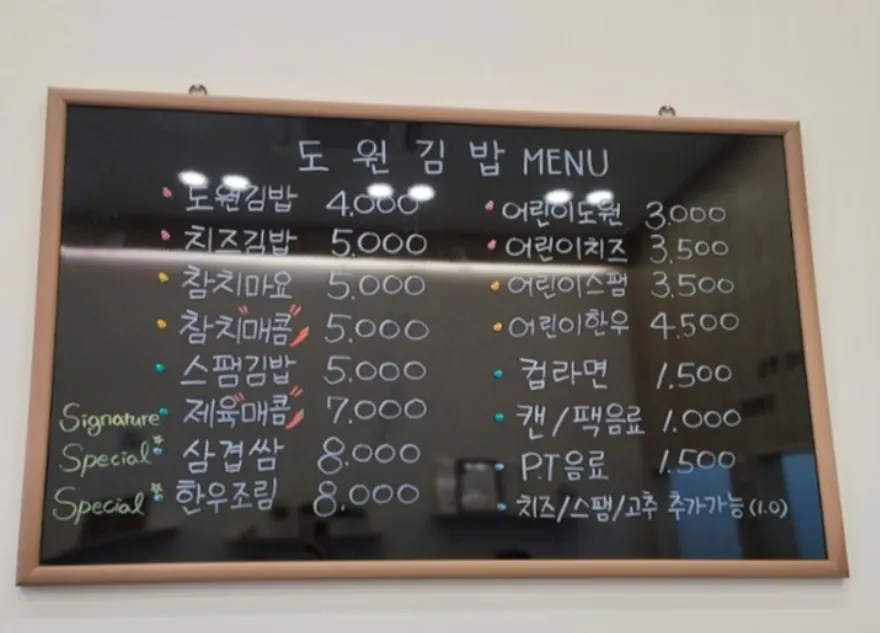 도원김밥 MENU
도원김밥 4.000
치즈김밥 5.000
참치마요 5.000
참치"매콤" 5.000
스팸김밥 5.000
Signature 제육"매콤" 7.000
Special 삼겹쌈 8.000
Special 한우조림 8.000
어린이도원 3.000
어린이치즈 3.500
어린이스팸 3.500
어린이한우 4.500
컵라면 1.500
캔/팩음료 1.000
P.T음료 1.500
치즈/스팸/고추 추가가능(1.0)